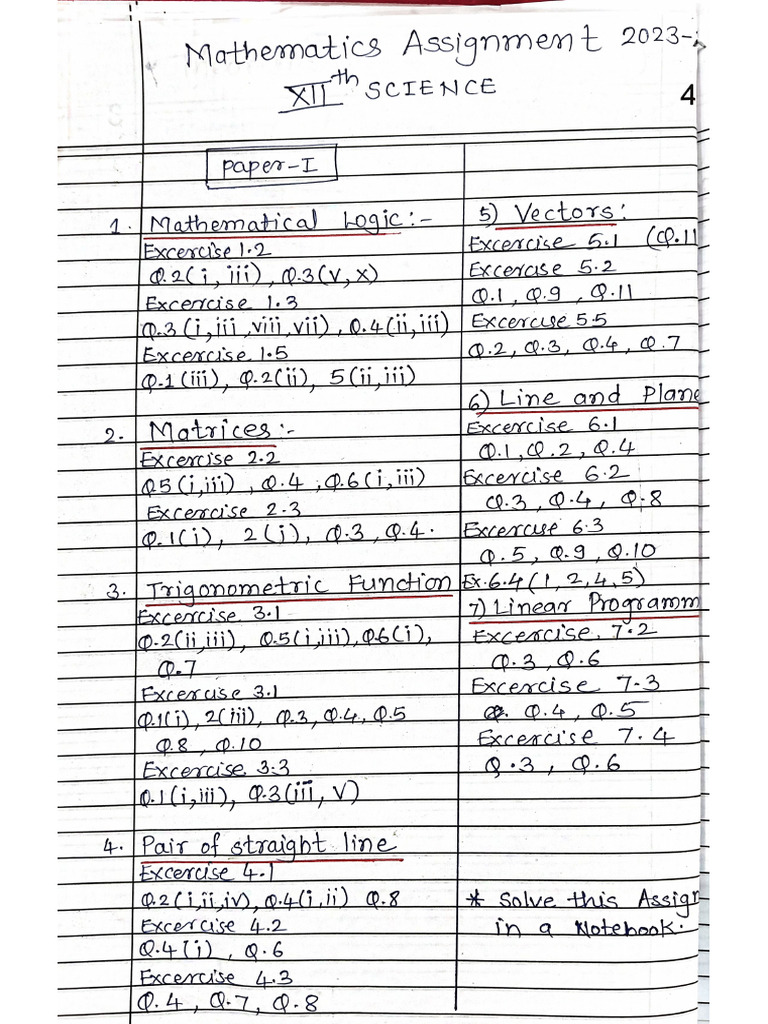 Mathematics Assignment 2023-
XIIth SCIENCE
4
Paper-I
1. Mathematical Logic:-
Excercise 1.2
Q.2(i, iii), Q.3(v, x)
Excercise 1.3
Q.3(i, iii, viii, vii), Q.4(ii, iii)
Excercise 1.5
Q.1(iii), Q.2(ii), 5(ii, iii)
2. Matrices:-
Excercise 2.2
Q.5(i, iii), Q.4, Q.6(i, iii)
Excercise 2.3
Q.1(i), 2(i), Q.3, Q.4.
3. Trigonometric Function
Excercise 3.1
Q.2(ii, iii), Q.5(i, iii), Q.6(i),
Q.7
Excercise 3.1
Q.1(i), 2(iii), Q.3, Q.4, Q.5
Q.8, Q.10
Excercise 3.3
Q.1(i, iii), Q.3(iii, v)
4. Pair of straight line
Excercise 4.1
Q.2(i, ii, iv), Q.4(i, ii) Q.8
Excercise 4.2
Q.4(i), Q.6
Excercise 4.3
Q.4, Q.7, Q.8
5) Vectors:
Excercise 5.1 (Q.11
Excercise 5.2
Q.1, Q.9, Q.11
Excercise 5.5
Q.2, Q.3, Q.4, Q.7
6) Line and Plane
Excercise 6.1
Q.1, Q.2, Q.4
Excercise 6.2
Q.3, Q.4, Q.8
Excercise 6.3
Q.5, Q.9, Q.10
Ex.6.4(1, 2, 4, 5)
7) Linear Programm
Excercise 7.2
Q.3, Q.6
Excercise 7.3
Q.4, Q.5
Excercise 7.4
Q.3, Q.6
* Solve this Assign
in a Notebook.